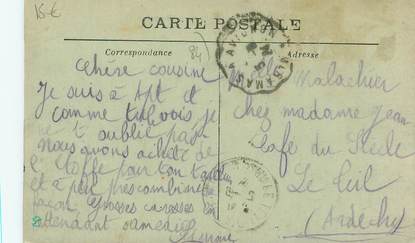 15€
CARTE POSTALE
Correspondance
Adresse
84
chère cousine
Je suis à Apt et
comme tu vois je
ne t oublie pas
nous avons acheté de
l'étoffe pour ton
et a peu pres combiner
façon Grosses caresses en
attendant samedi
Malachier
chez madame Jean
Café du Siècle
Le Teil
(Ardèche)